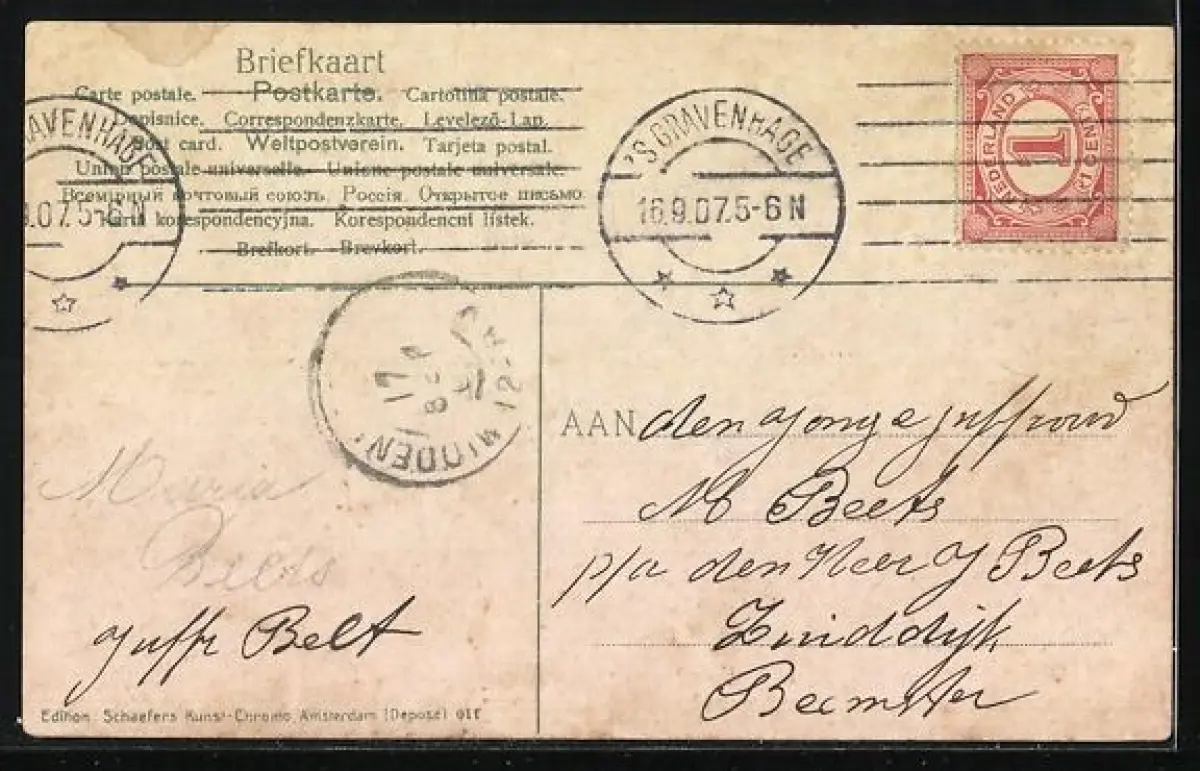 Briefkaart
Carte postale. Postkarte. Cartolina postale.
Dopisnice. Correspondenzkarte. Levelező-Lap.
Post card. Weltpostverein. Tarjeta postal.
Union postale universelle. Unione postale universale.
Всемірный почтовый союзъ. Россія. Открытое письмо
Karta korespondencyjna. Korespondencní listek.
Brefkort. Brevkort.
AVENHAGE
.07.5-6 N
'S GRAVENHAGE
16.9.07.5-6 N
NEDERLAND
1
1 CENT
17
SEP
12-
MIDDEN
AAN den jonge juffrouw
M Beets
p/a den Heer J Beets
Zuiddijk
Beemster
Maria
Beets
Juffr Belt
Edition Schaefers Kunst-Chromo Amsterdam (Deposé)